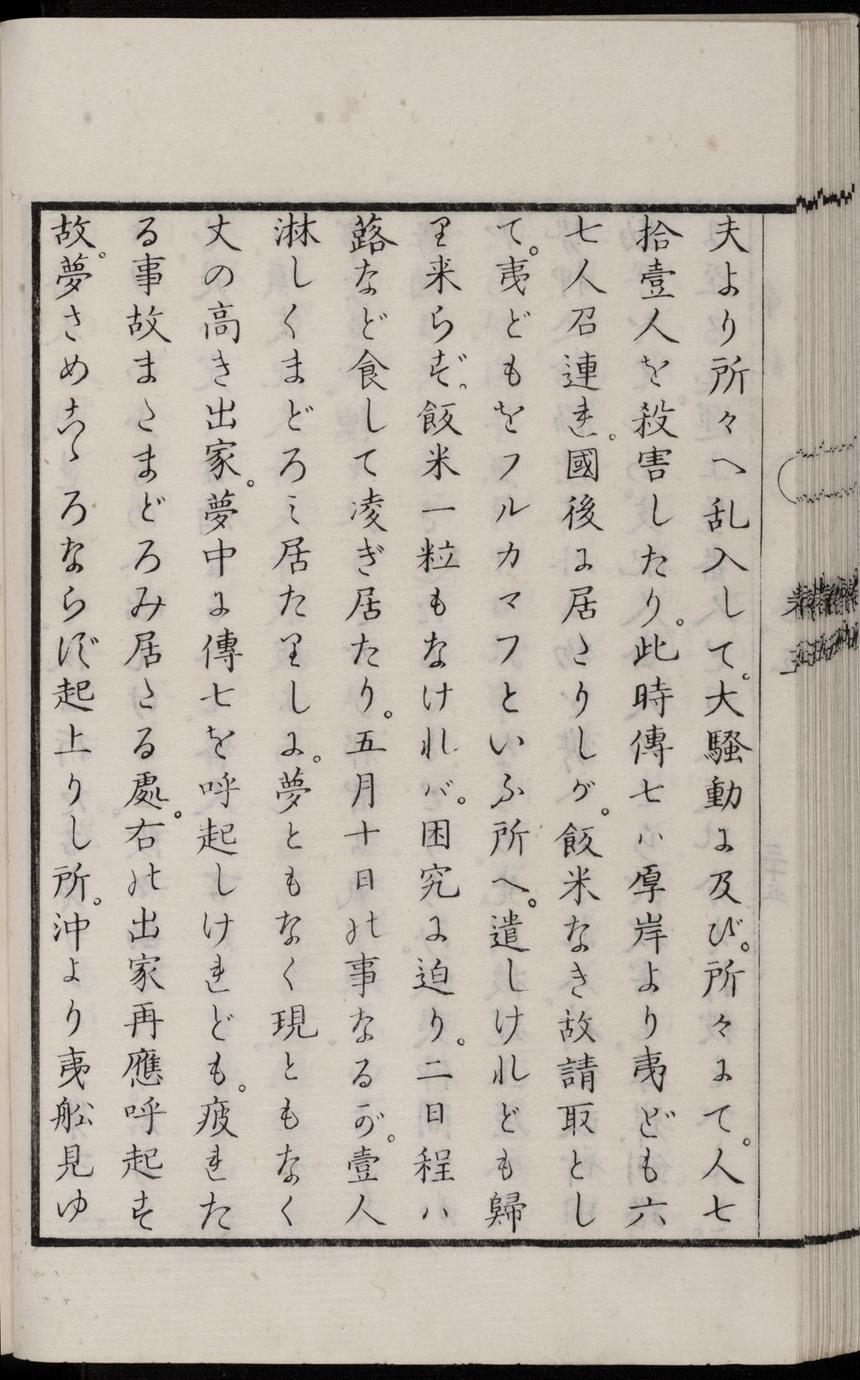 夫より所々へ乱入して。大騒動に及び。所々にて。人七
拾壹人を殺害したり。此時傳七ハ厚岸より夷ども六
七人召連れ。國後に居たりしが。飯米なき故請取とし
て。夷どもをフルカマフといふ所へ。遣しけれども歸
り来らず。飯米一粒もなけれバ。困究に迫り。二日程ハ
蕗など食して凌ぎ居たり。五月十日の事なるが。壹人
淋しくまどろミ居たりしに。夢ともなく現ともなく
丈の高き出家。夢中に傳七を呼起しけれども。疲れた
る事故またまどろみ居たる處。右の出家再應呼起す
故。夢さめこゝろならず起上りし所。沖より夷舩見ゆ